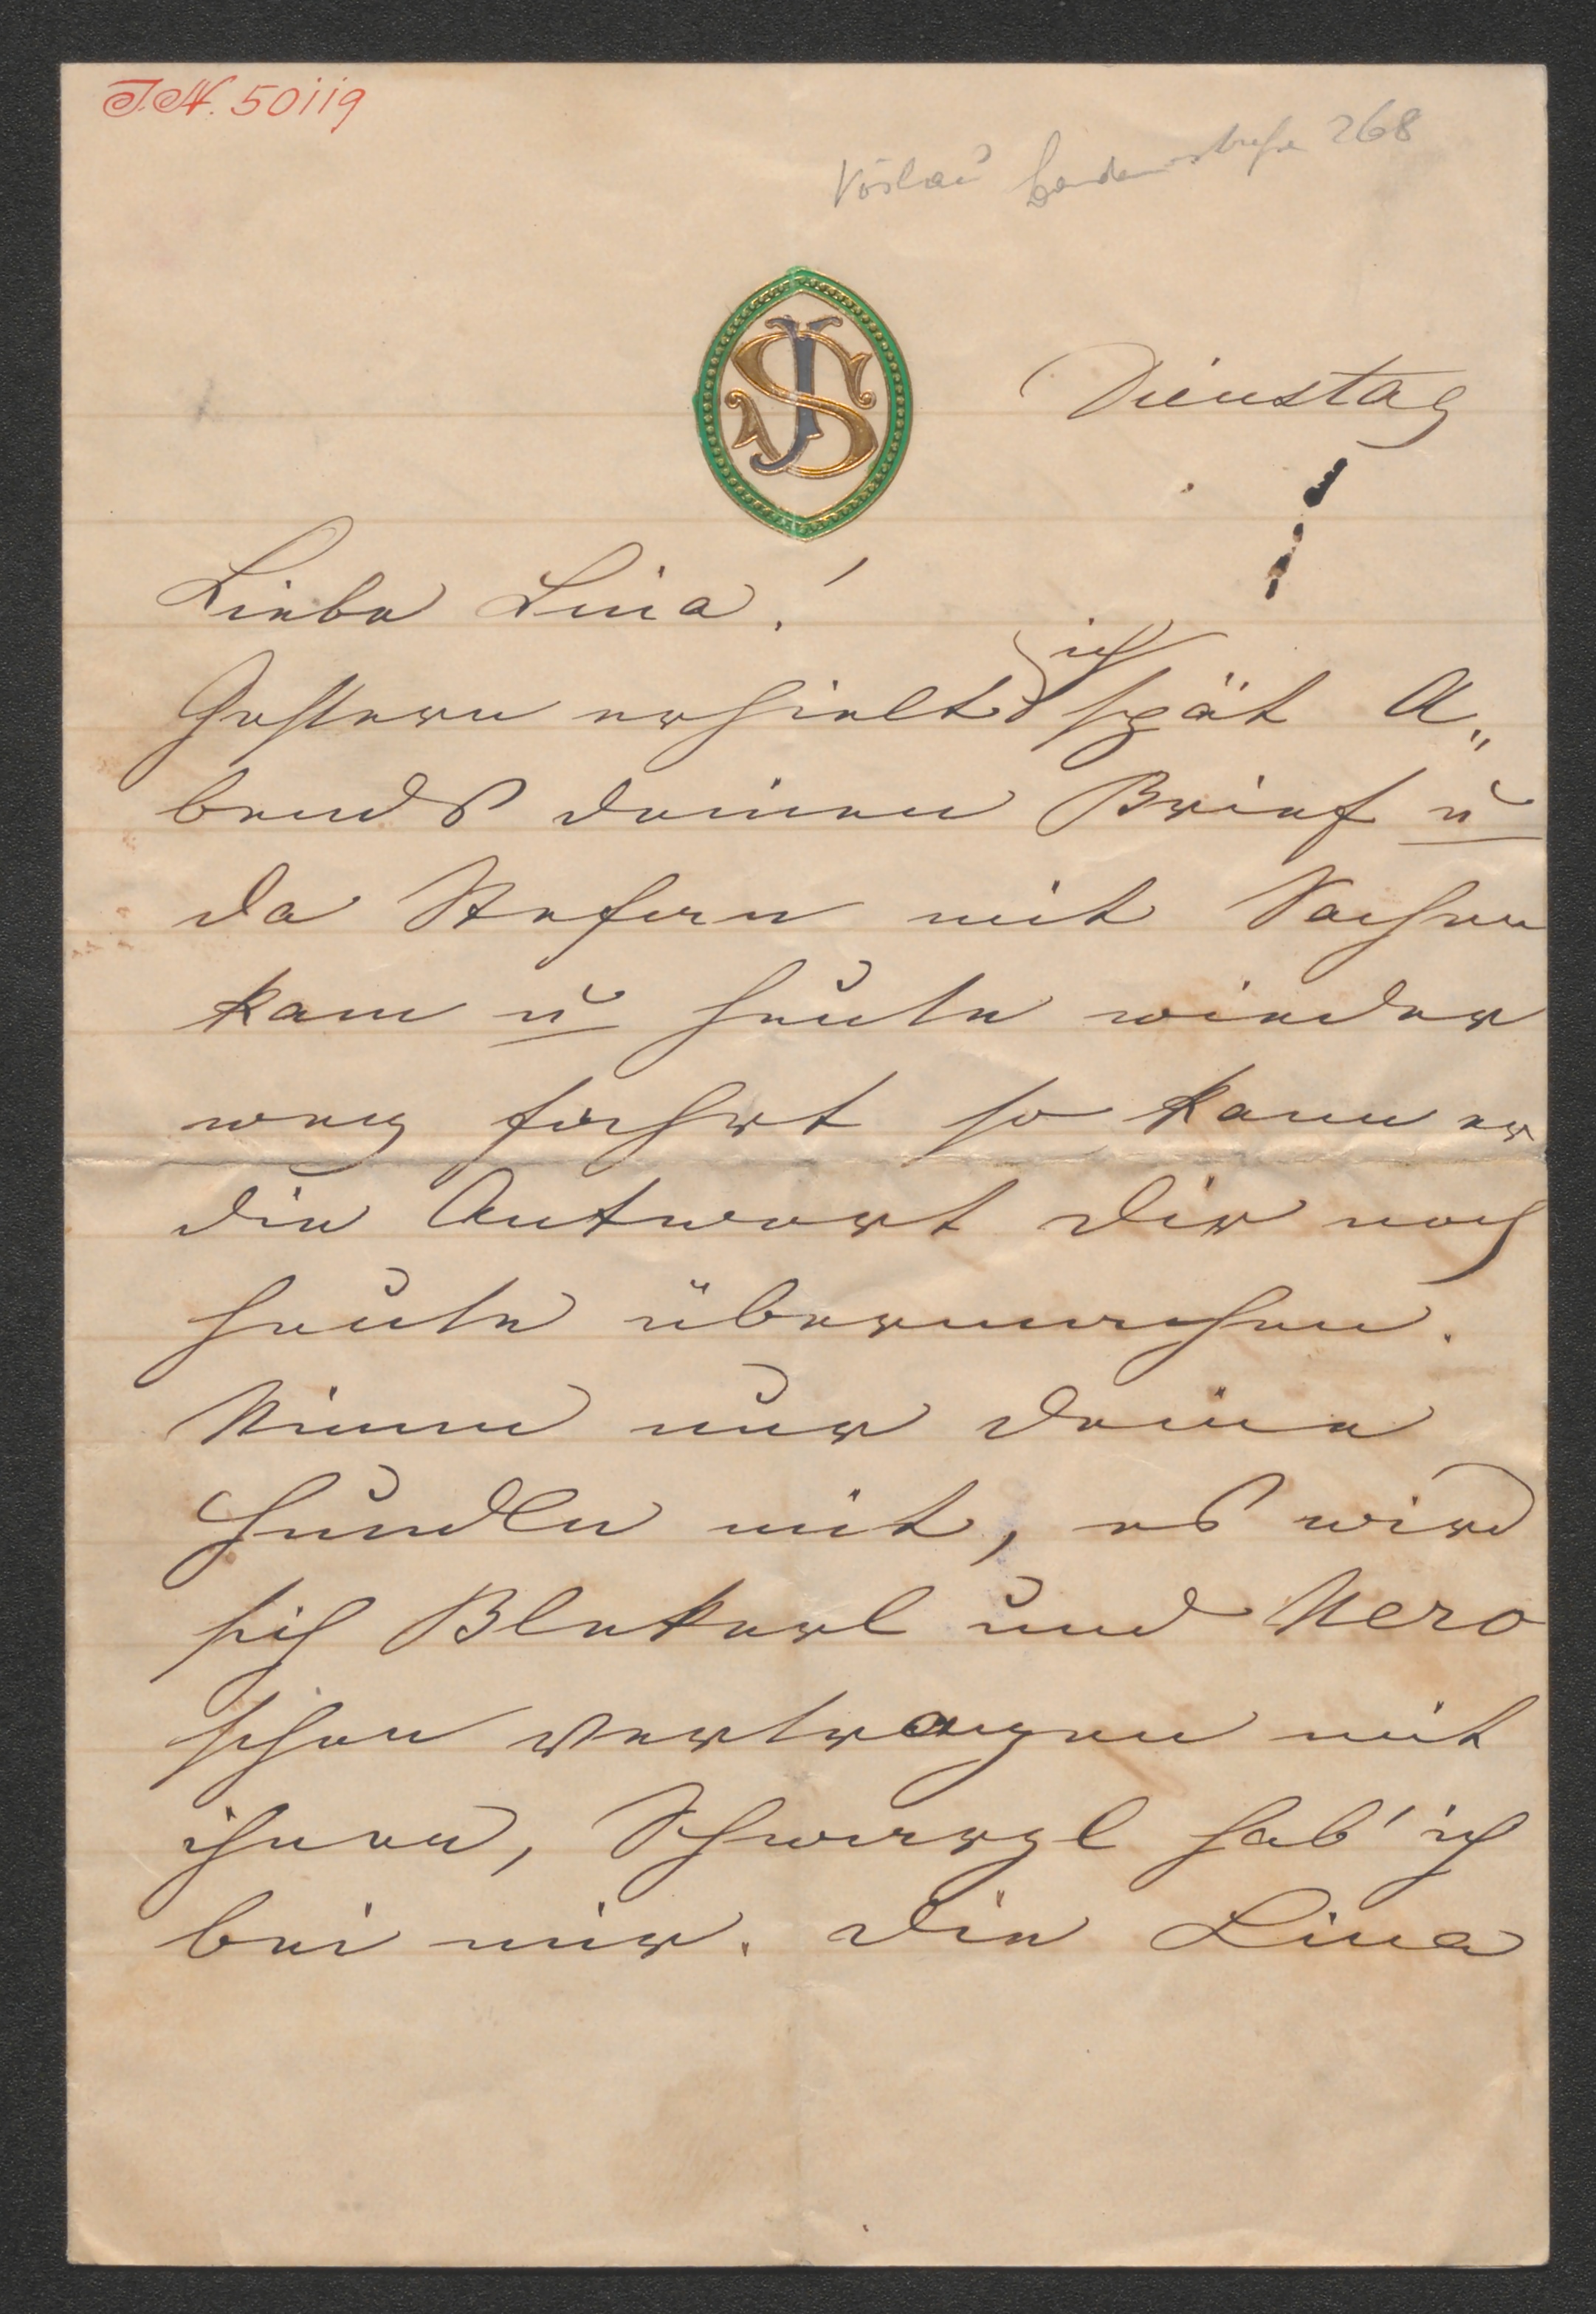 J.N. 50119
Vöslau 268
JS
Dienstag
Liebe Lina!
Gestern erhielt ich spät A„
bends deinen Brief u
da Stefern mit Sachen
kam u heute wieder
weg fährt so kann er
die Antwort dir noch
heute übermachen.
Nimm nur deine
Hundln mit, es wird
sich Blekerl und Nero
schon vertragen mit
ihnen, Schwarzl hab' ich
bei mir. die Lina